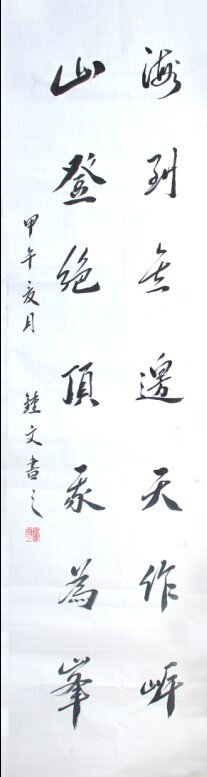 海到無邊天作岸
山登絶頂我為峯
甲午亥月 鍾文書之